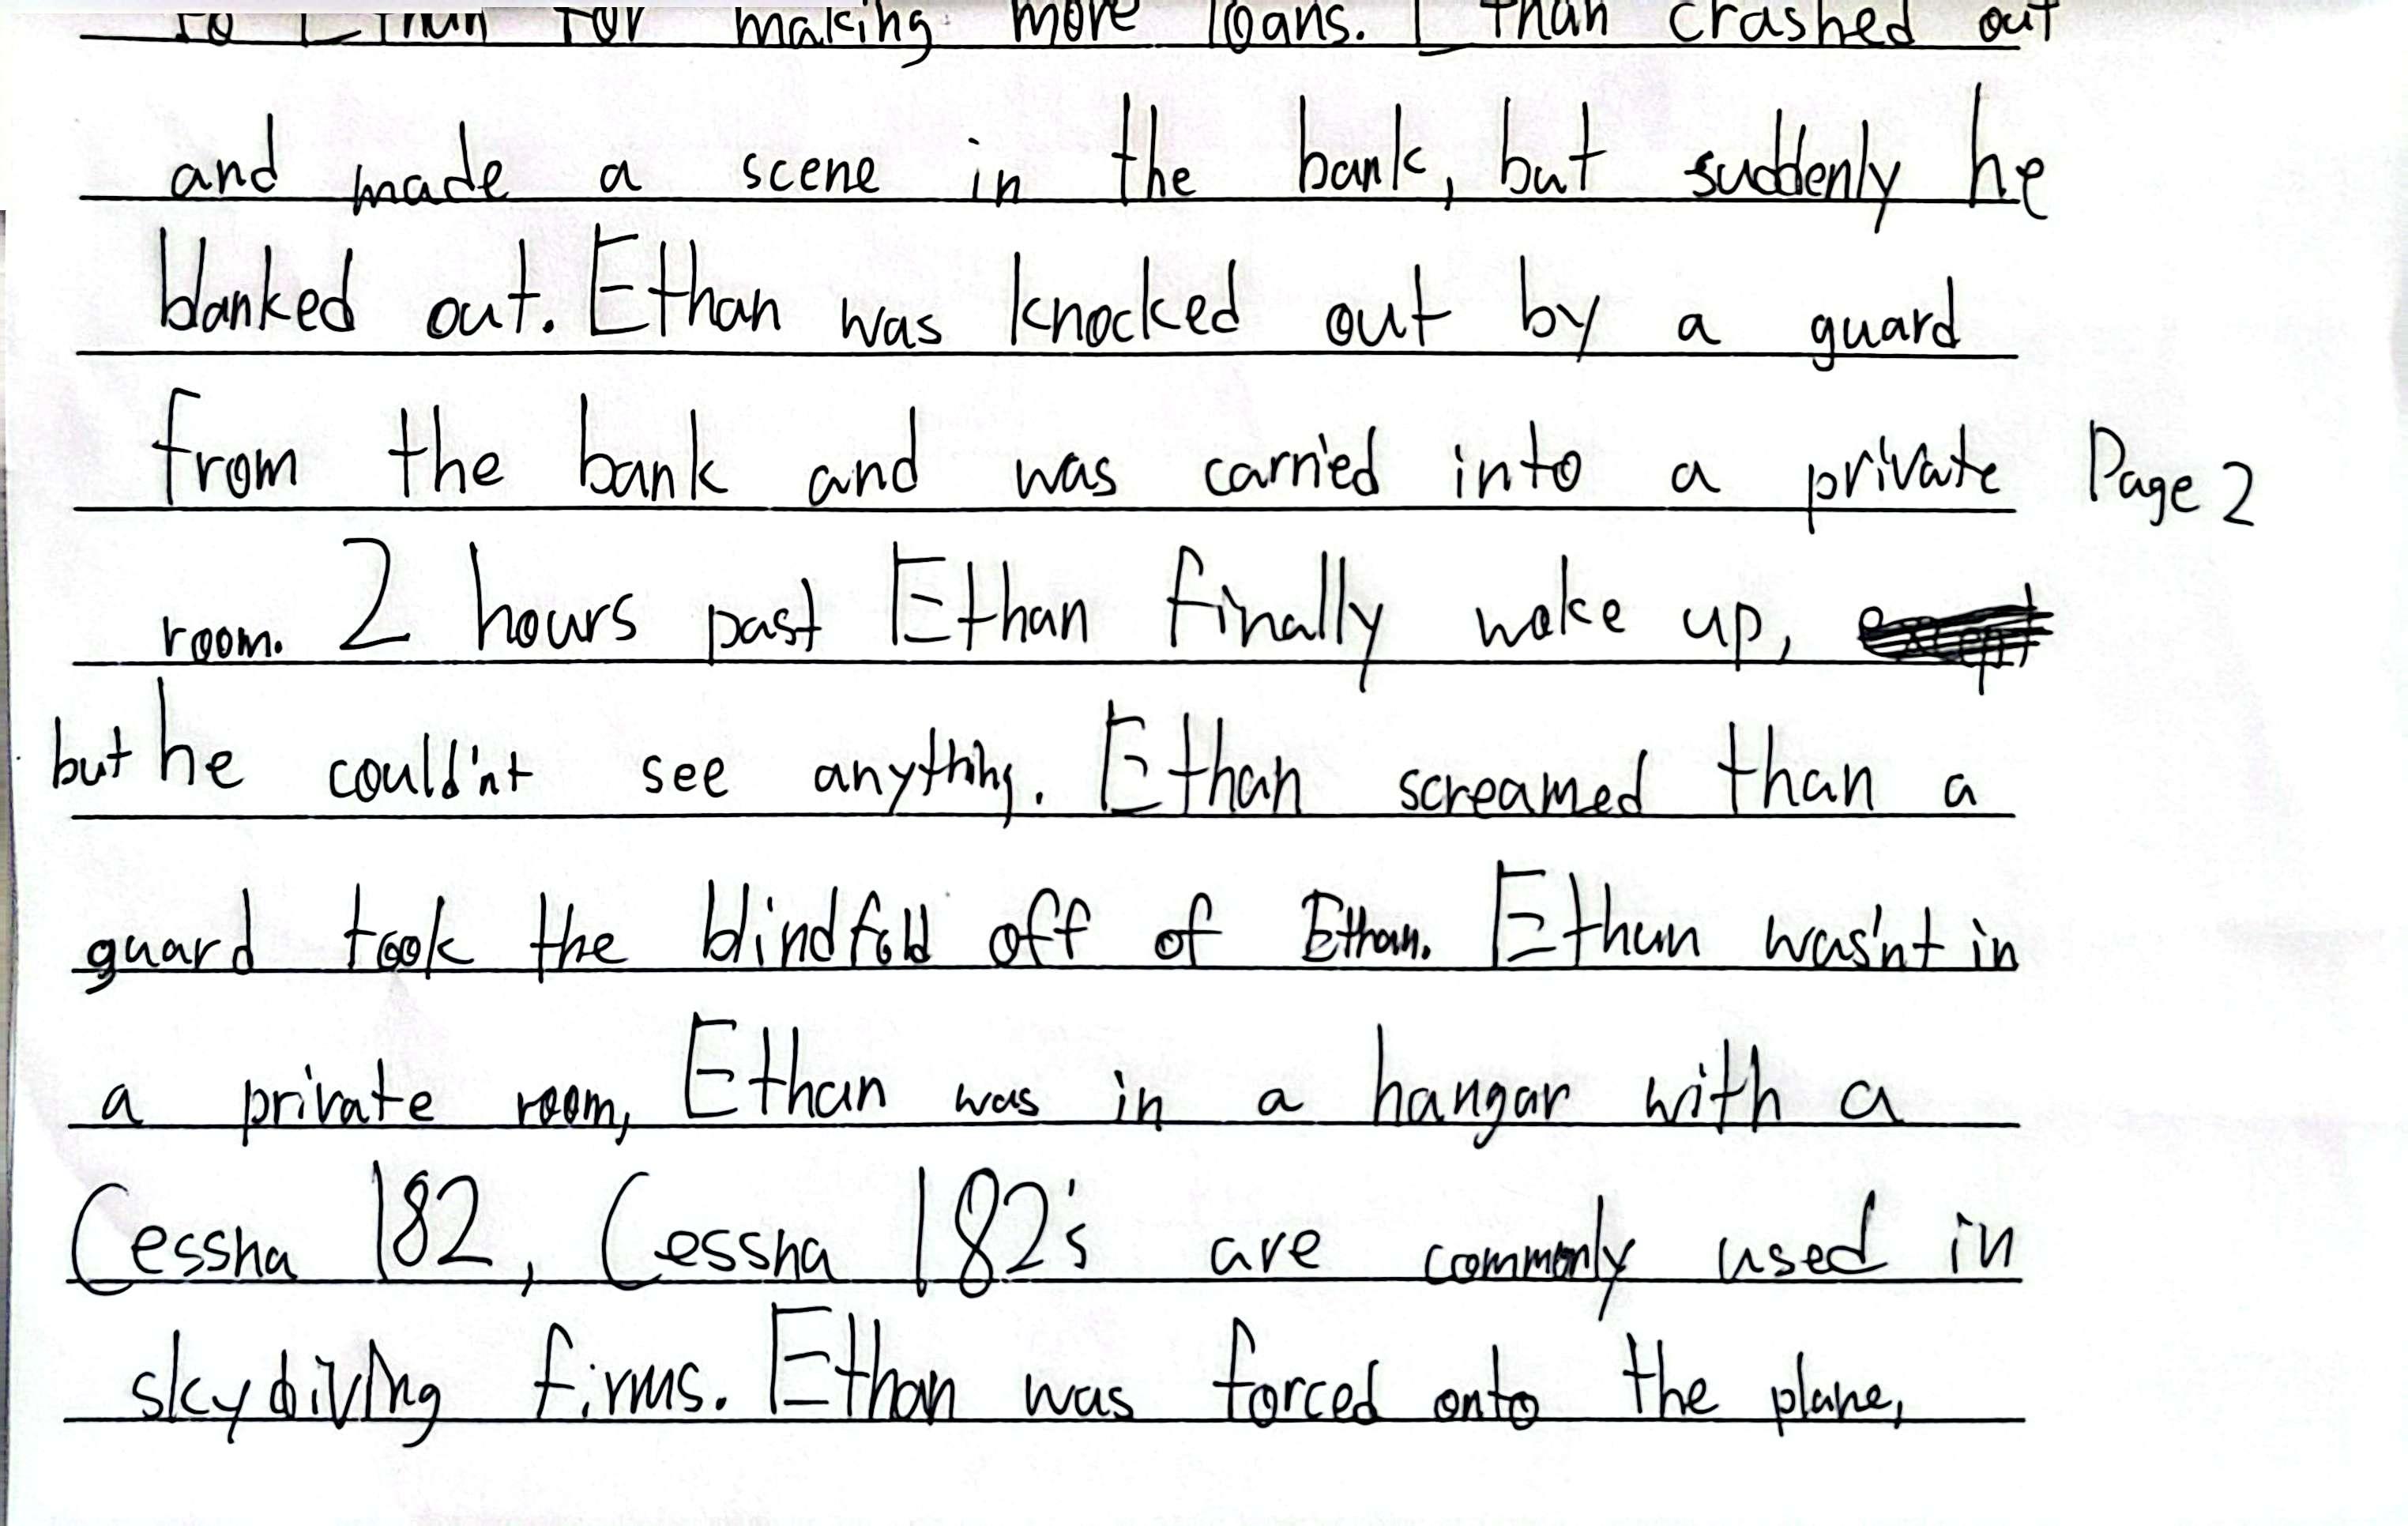 to Ethan for making more loans. Ethan crashed out
and made a scene in the bank, but suddenly he
blanked out. Ethan was knocked out by a guard
from the bank and was carried into a private
Page 2
room. 2 hours past Ethan finally woke up,
but he could'nt see anything. Ethan screamed than a
guard took the blindfold off of Ethan. Ethan was'nt in
a private room, Ethan was in a hangar with a
Cessna 182, Cessna 182's are commonly used in
skydiving firms. Ethan was forced onto the plane,